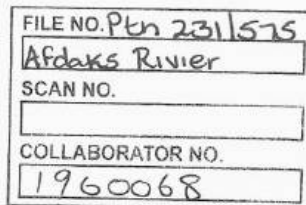 FILE NO. Ptn 231/575
Afdaks Rivier
SCAN NO.
COLLABORATOR NO.
1960068